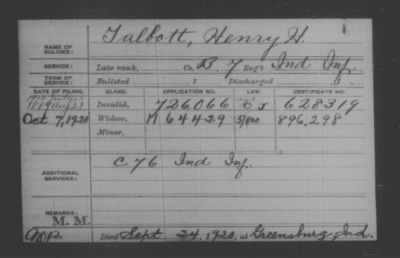 Talbott, Henry H.
NAME OF SOLDIER:
SERVICE: Late rank, Co. B, 7 Reg't Ind Inf.
TERM OF SERVICE: Enlisted , 1 Discharged , 1
DATE OF FILING. CLASS. APPLICATION NO. LAW. CERTIFICATE NO.
1889 Aug 21 Invalid, 726066 C J 628319
Oct 7, 1920 Widow, 164429 896,298
Minor,
ADDITIONAL SERVICES: C 76 Ind Inf.
REMARKS:
M. M.
Died Sept 24, 1920, at Greensburg, Ind.